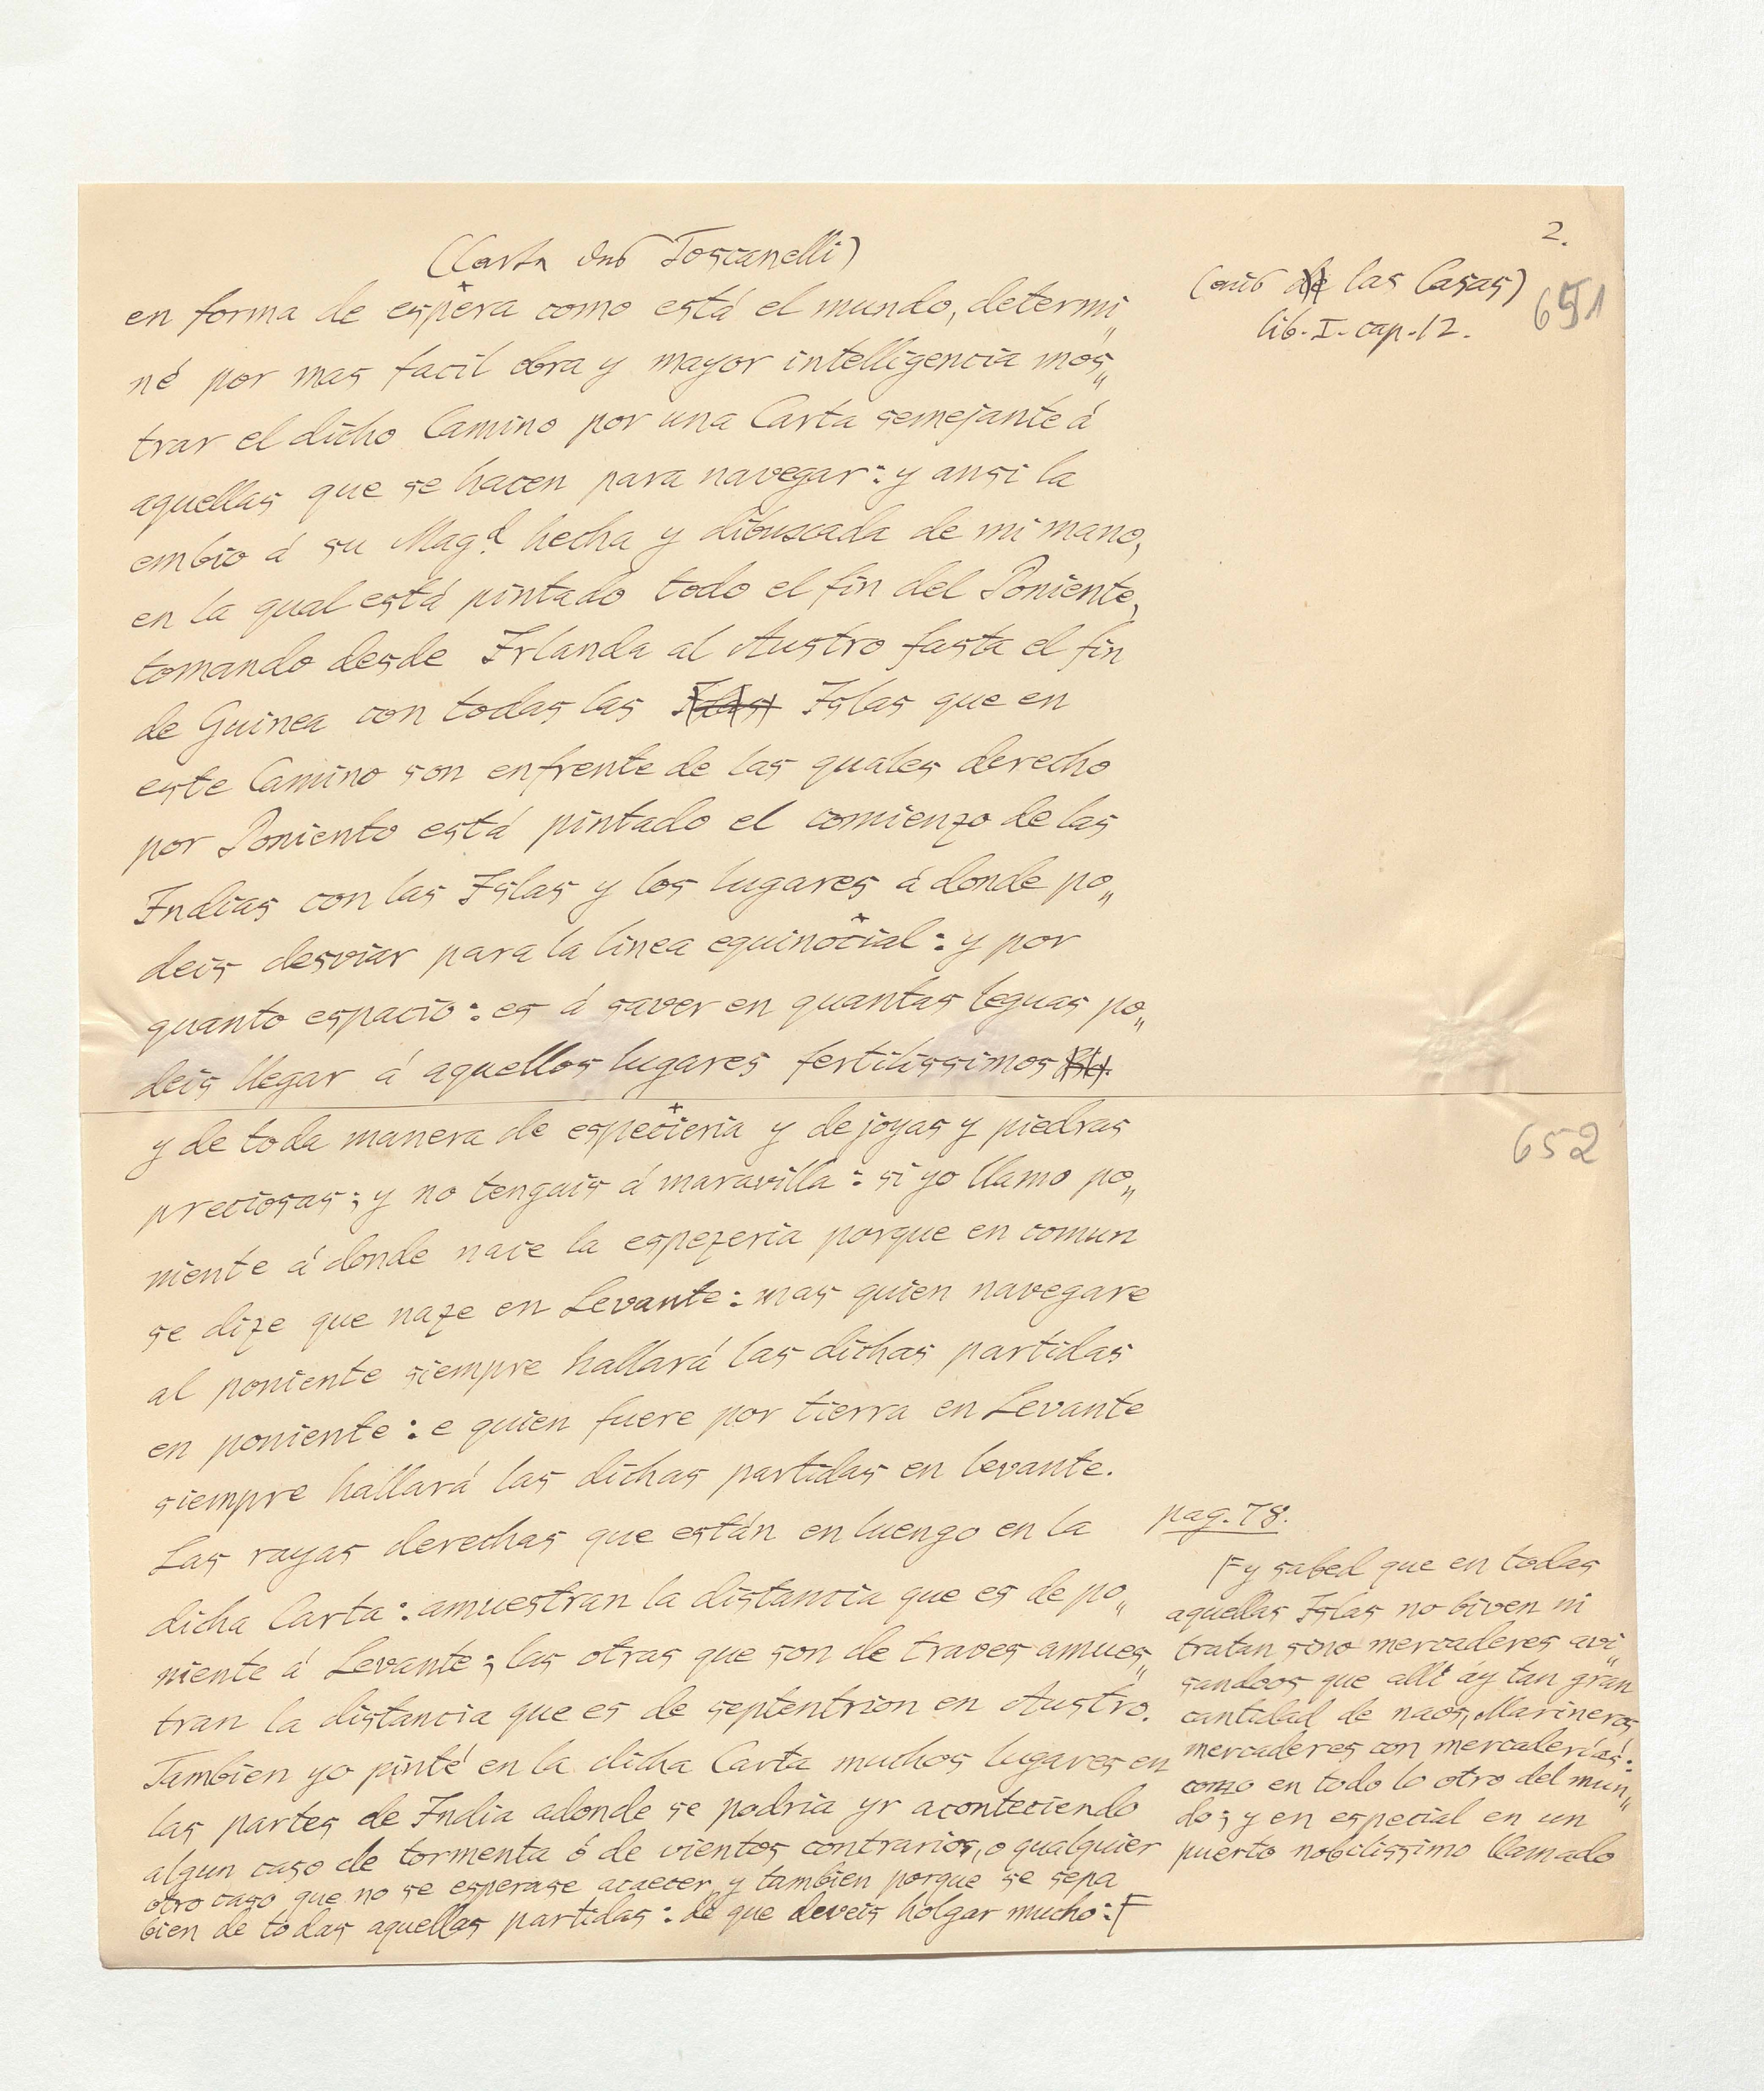 2.
(Carta des Toscanelli)
(aus de las Casas)
lib. I. cap. 12.
651
en forma de espera como está el mundo, determi„
né por mas facil obra y mayor intelligencia mos„
trar el dicho Camino por una Carta semejante á
aquellas que se hacen para navegar: y ansi la
embio á su Mag.d hecha y dibuscada de mi mano,
en la qual está pintado todo el fin del Poniente,
tomando desde Irlanda al Austro fasta el fin
de Guinea con todas las Islas que en
este Camino son enfrente de las quales derecho
por Poniento está pintado el comienzo de las
Indias con las Islas y los lugares á donde po„
deis desviar para la linea equinocial: y por
quanto espacio: es á saver en quantas leguas po„
deis llegar á aquellos lugares fertilissimos
y de toda manera de especieria y de joyas y piedras
652
preciosas; y no tengais á maravilla: si yo llamo po„
niente á donde nace la espezeria porque en comun
se dize que naze en Levante: mas quien navegare
al poniente siempre hallará las dichas partidas
en poniente: e quien fuere por tierra en Levante
siempre hallará las dichas partidas en levante.
Las rayas derechas que están en luengo en la
dicha Carta: amuestran la distancia que es de po„
niente á Levante; las otras que son de traves amues„
tran la distancia que es de septentrion en Austro.
Tambien yo pinté en la dicha Carta muchos lugares en
las partes de India adonde se podria yr aconteciendo
algun caso de tormenta ó de vientos contrarios, o qualquier
otro caso que no se esperase acaecer, y tambien porque se sepa
bien de todas aquellas partidas: de que deveis holgar mucho: F
pag. 78.
F y sabed que en todas
aquellas Islas no biven ni
tratan sino mercaderes avi„
sandoos que alli ay tan gran
cantidad de naos, Marineros,
mercaderes con mercaderías:
como en todo lo otro del mun„
do; y en especial en un
puerto nobilissimo llamado